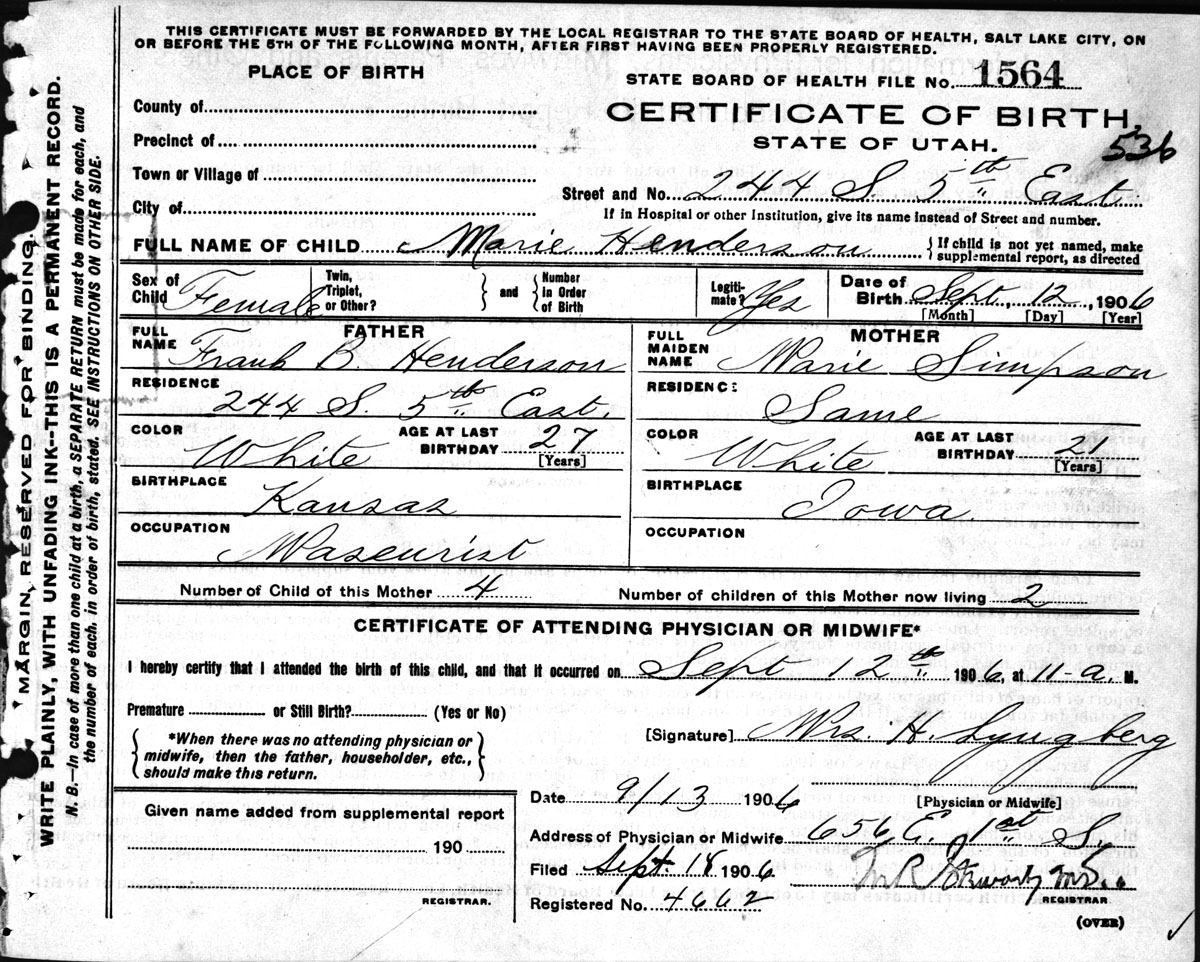 THIS CERTIFICATE MUST BE FORWARDED BY THE LOCAL REGISTRAR TO THE STATE BOARD OF HEALTH, SALT LAKE CITY, ON
OR BEFORE THE 5TH OF THE FOLLOWING MONTH, AFTER FIRST HAVING BEEN PROPERLY REGISTERED.
PLACE OF BIRTH
STATE BOARD OF HEALTH FILE No. 1564
County of
CERTIFICATE OF BIRTH,
Precinct of
STATE OF UTAH. 536
Town or Village of
Street and No. 244 S. 5th East
City of
If in Hospital or other Institution, give its name instead of Street and number.
FULL NAME OF CHILD Marie Henderson
{If child is not yet named, make
supplemental report, as directed
Sex of Child Female
Twin, Triplet, or Other?
} and {
Number in Order of Birth
Legiti-mate? Yes
Date of Birth Sept. 12, 1906
[Month] [Day] [Year]
FATHER
FULL NAME Frank B. Henderson
MOTHER
FULL MAIDEN NAME Marie Simpson
RESIDENCE 244 S. 5th East.
RESIDENCE Same
COLOR White AGE AT LAST BIRTHDAY 27 [Years]
COLOR White AGE AT LAST BIRTHDAY 21 [Years]
BIRTHPLACE Kansas
BIRTHPLACE Iowa.
OCCUPATION
OCCUPATION
Number of Child of this Mother 4
Number of children of this Mother now living 2
CERTIFICATE OF ATTENDING PHYSICIAN OR MIDWIFE*
I hereby certify that I attended the birth of this child, and that it occurred on Sept 12th 1906, at 11-a. M.
Premature or Still Birth? (Yes or No)
{*When there was no attending physician or
midwife, then the father, householder, etc.,
should make this return.}
[Signature] Mrs. H. Lyngberg
[Physician or Midwife]
Given name added from supplemental report
190
REGISTRAR.
Date 9/13 1906
Address of Physician or Midwife 656 E. 1st S.
Filed Sept. 18 1906
REGISTRAR
Registered No. 4662
(OVER)
MARGIN RESERVED FOR BINDING.
WRITE PLAINLY, WITH UNFADING INK--THIS IS A PERMANENT RECORD.
N. B.—In case of more than one child at a birth, a SEPARATE RETURN must be made for each, and
the number of each, in order of birth, stated. SEE INSTRUCTIONS ON OTHER SIDE.